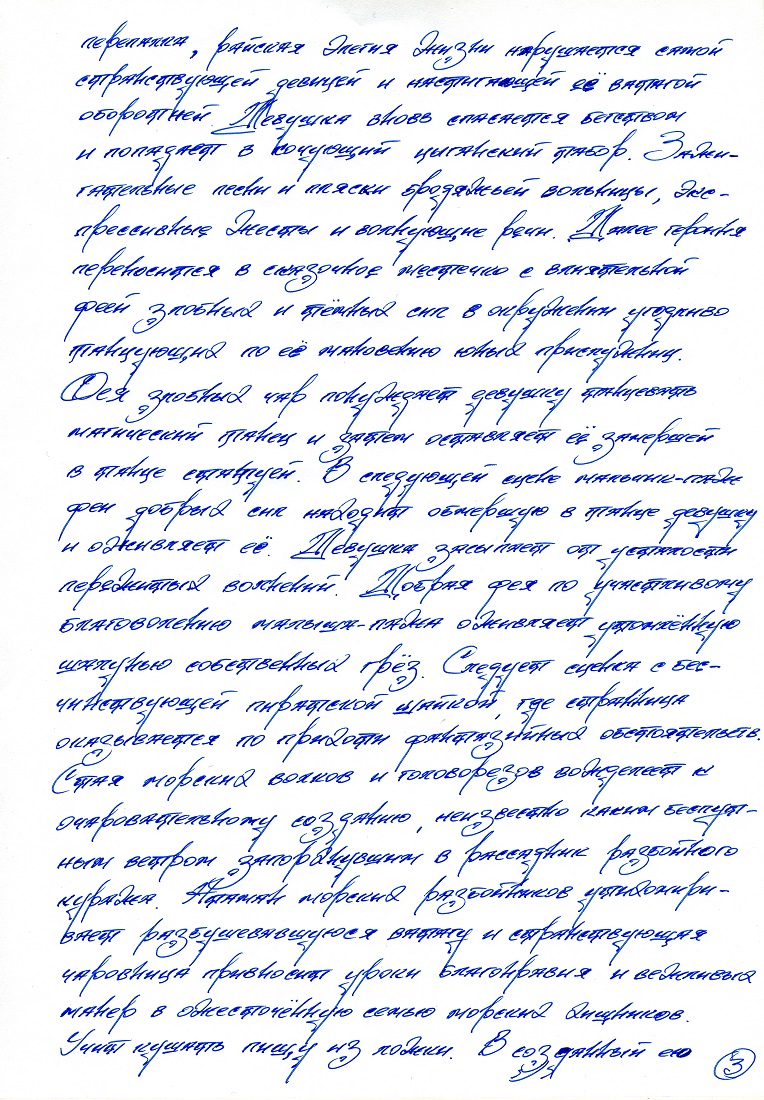 перепалка, райская элегия жизни нарушается самой
странствующей девицей и настигающей её ватагой
оборотней. Девушка вновь спасается бегством
и попадает в кочующий цыганский табор. Зажи-
гательные песни и пляски бродяжьей вольницы, экс-
прессивные жесты и волнующие речи. Далее героиня
переносится в сказочное местечко с влиятельной
феей злобных и тёмных сил в окружении угодливо
танцующих по её мановению юных прислужниц.
Фея злобных чар понуждает девушку танцевать
магический танец и затем оставляет её замершей
в танце статуей. В следующей сцене мальчик-паж
феи добрых сил находит обмершую в танце девушку
и оживляет её. Девушка засыпает от усталости
пережитых волнений. Добрая фея по участливому
благоволению малыша-пажа оживляет утомлённую
шалунью собственных грёз. Следует сценка с бес-
чинствующей пиратской шайкой, где странница
оказывается по прихоти фантазийных обстоятельств.
Стая морских волков и головорезов вожделеет к
очаровательному созданию, неизвестно каким беспут-
ным ветром запорхнувшим в рассадник разбойного
куража. Атаман морских разбойников утихомири-
вает разбушевавшуюся ватагу и странствующая
чаровница привносит уроки благонравия и вежливых
манер в ожесточённую семью морских хищников.
Учит кушать пищу из ложки. В созданный ею
3